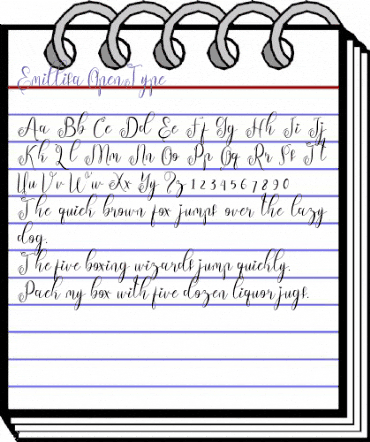 Emillisa OpenType
Aa Bb Cc Dd Ee Ff Gg Hh Ii Jj
Kk Ll Mm Nn Oo Pp Qq Rr Ss Tt
Uu Vv Ww Xx Yy Zz 1 2 3 4 5 6 7 8 9 0
The quick brown fox jumps over the lazy
dog.
The five boxing wizards jump quickly.
Pack my box with five dozen liquor jugs.